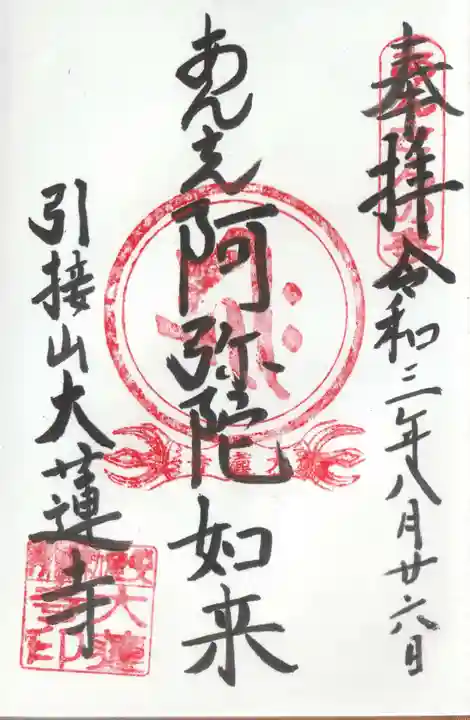 奉拝 令和三年八月廿六日
あんさん阿弥陀如来
引接山大蓮寺